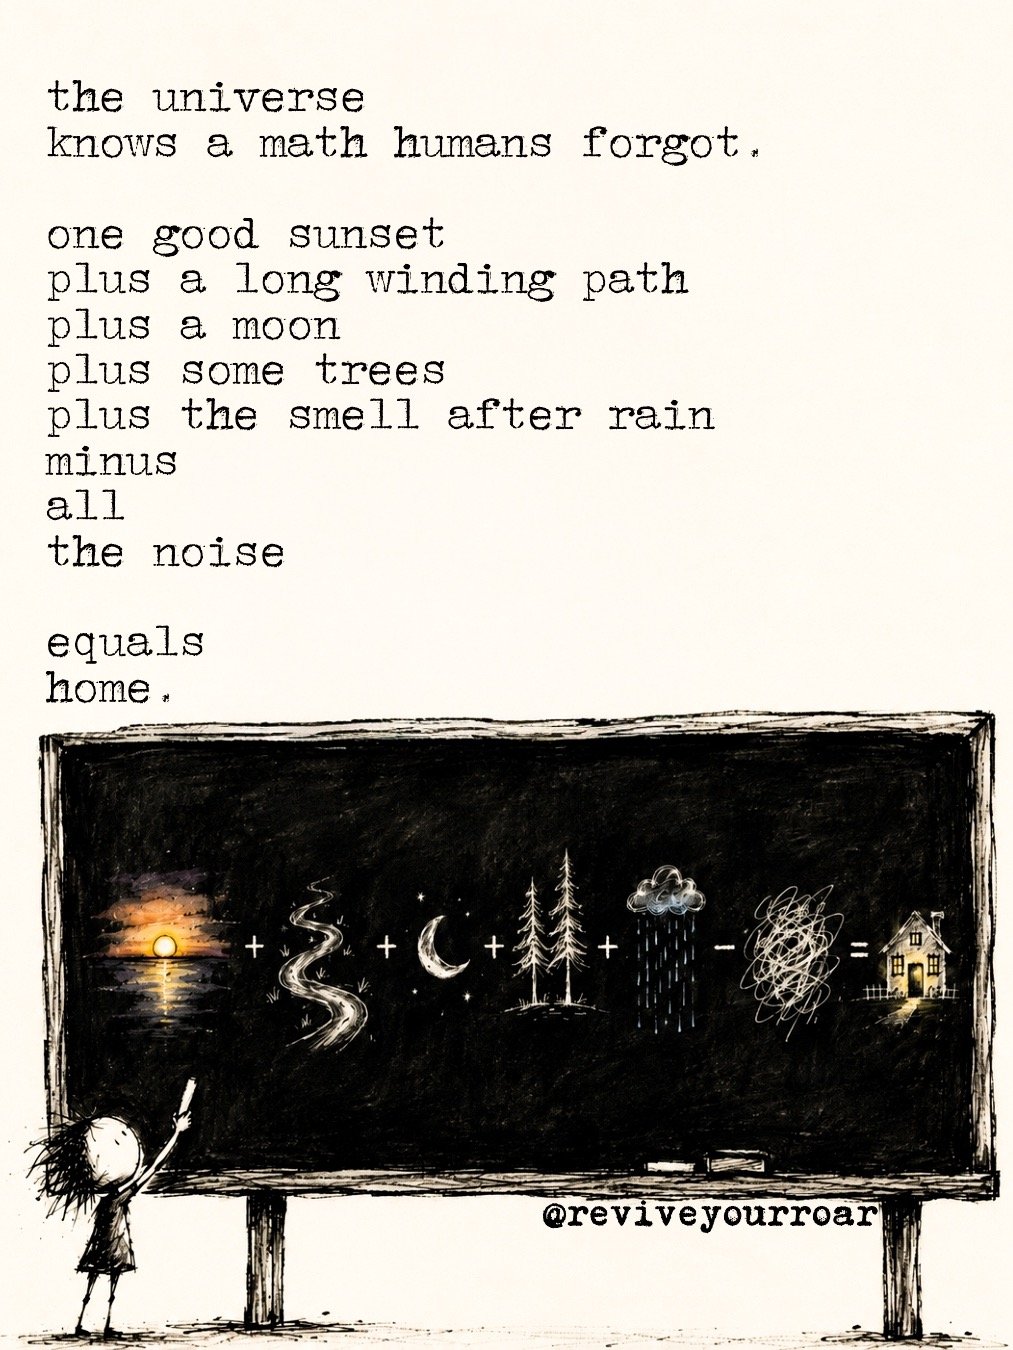 the universe
knows a math humans forgot.
one good sunset
plus a long winding path
plus a moon
plus some trees
plus the smell after rain
minus
all
the noise
equals
home.
+ + + + - =
@reviveyourroar